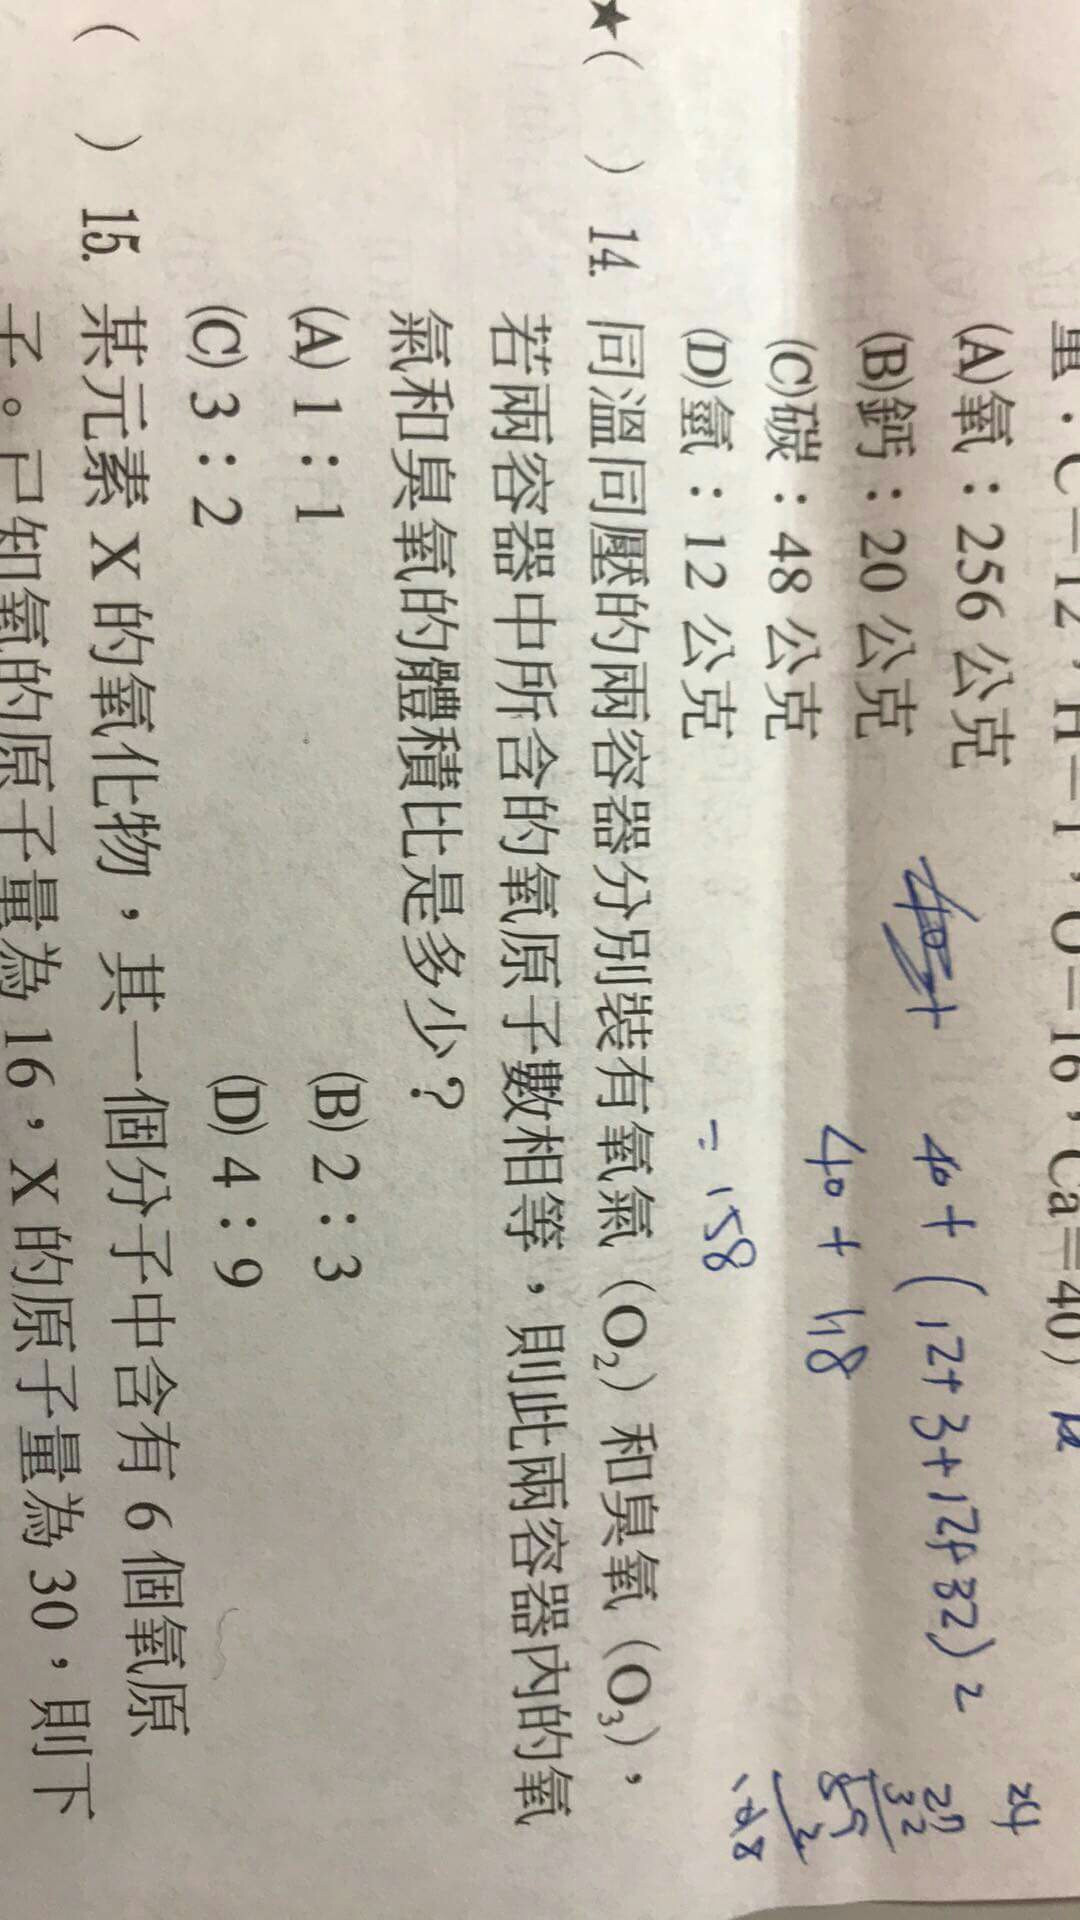 量：C＝12，H＝1，O＝16，Ca＝40）
(A)氧：256 公克
(B)鈣：20 公克
40 + (12+3+12+32) 2
(C)碳：48 公克
40 + 118
(D)氫：12 公克
= 158
24
27
32
★(　) 14. 同溫同壓的兩容器分別裝有氧氣（O₂）和臭氧（O₃），
若兩容器中所含的氧原子數相等，則此兩容器內的氧
氣和臭氧的體積比是多少？
(A) 1：1　(B) 2：3
(C) 3：2　(D) 4：9
(　) 15. 某元素 X 的氧化物，其一個分子中含有 6 個氧原
子。已知氧的原子量為 16，X 的原子量為 30，則下